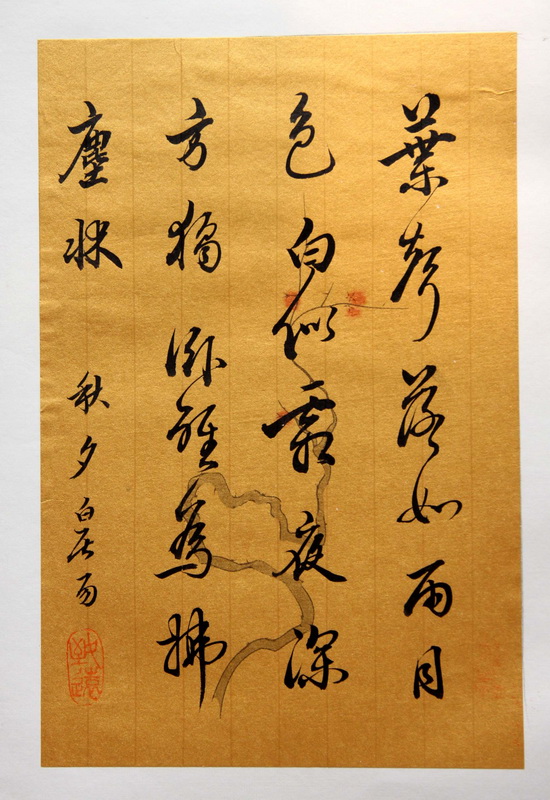 葉聲落如雨月
色白似霜夜深
方獨卧誰為拂
塵牀 秋夕 白居易